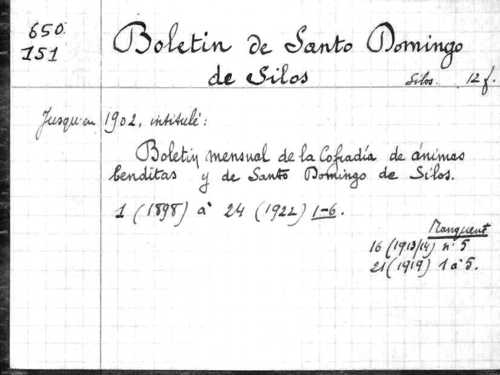 650
151
Boletin de Santo Domingo
de Silos
Silos. 12 f.
Jusqu'en 1902, intitulé:
Boletin mensual de la Cofradía de ánimas
benditas y de Santo Domingo de Silos.
1 (1898) à 24 (1922) 1-6.
Manquent
16 (1913/14) n° 5
21 (1919) 1 à 5.